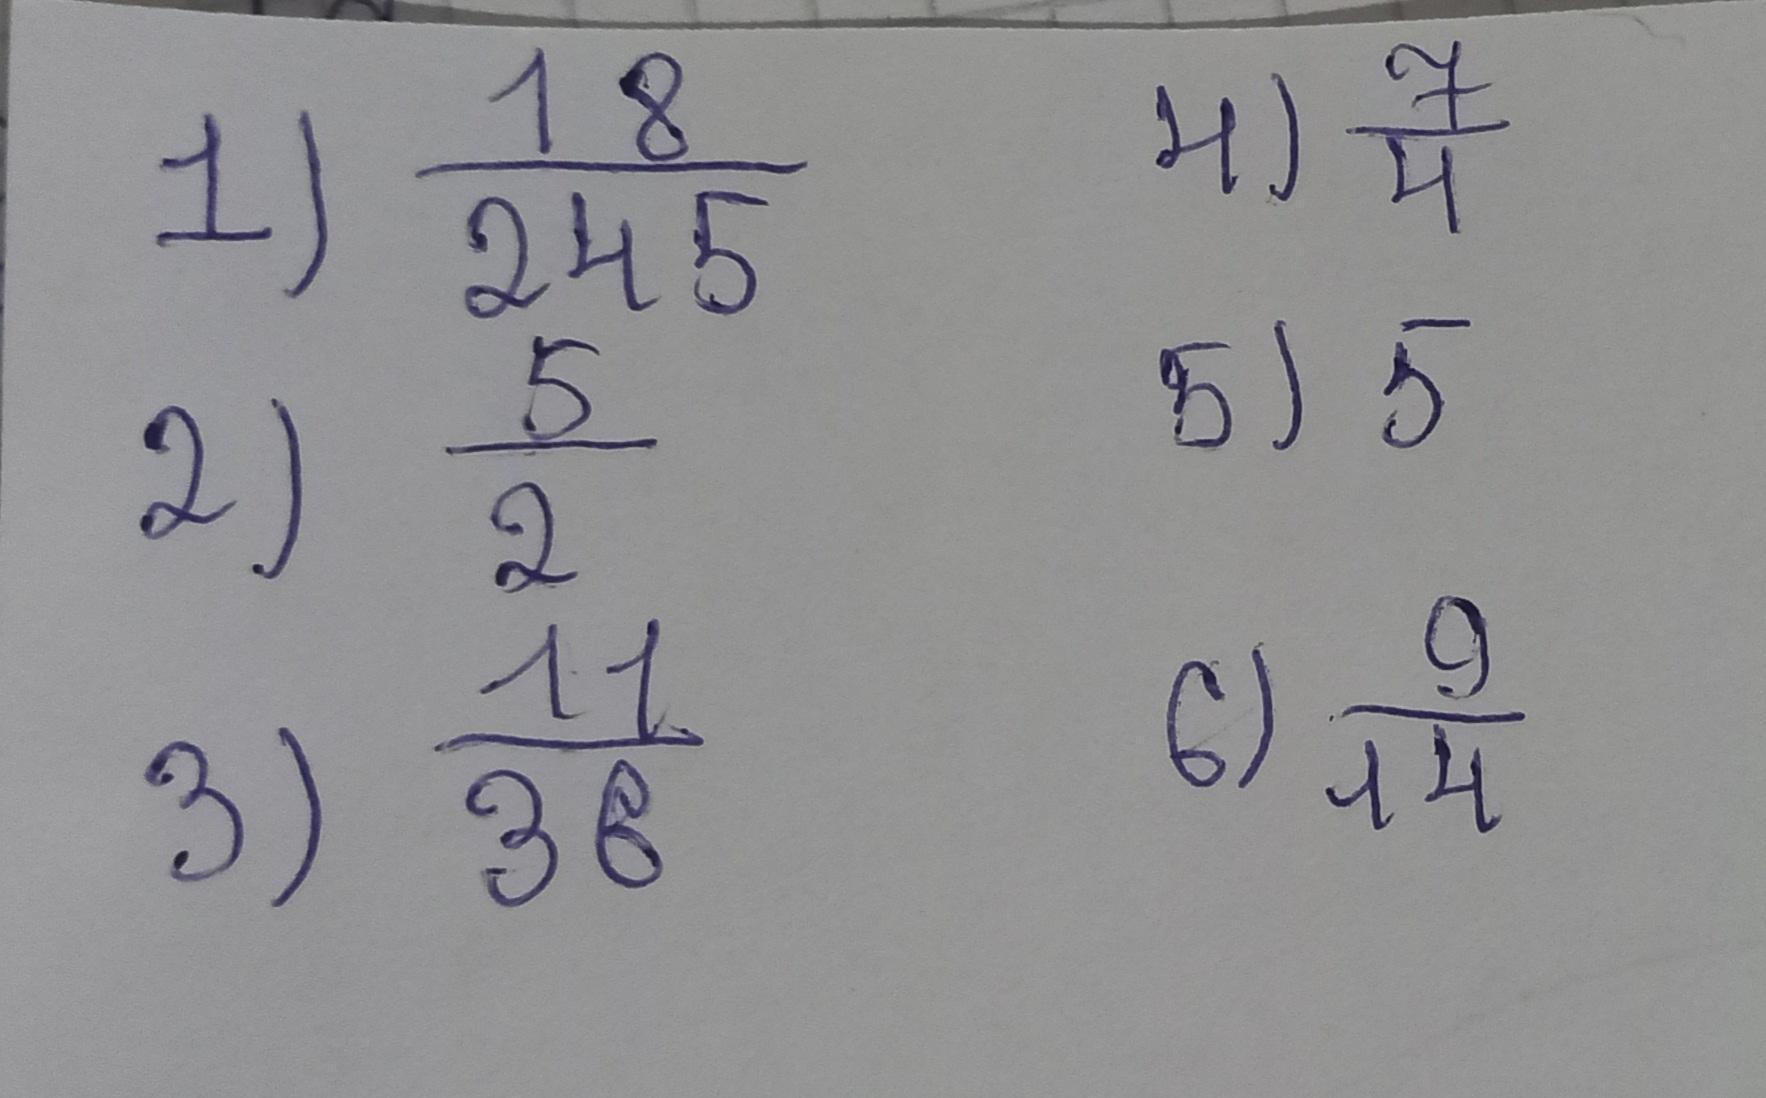 1) 18/245
2) 5/2
3) 11/36
4) 7/4
5) 5
6) 9/14